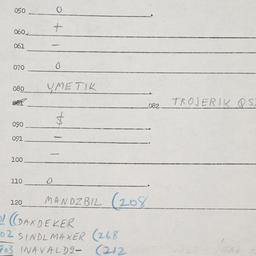 050 0
060 +
061 –
070 0
080 YMETIK
082 TROJERIK QS
090 $
091 –
100 –
110 0
120 MANDZBIL (208
((DAXDEKER
02 SINDLMAXER (268
703 INAVALD2– (212